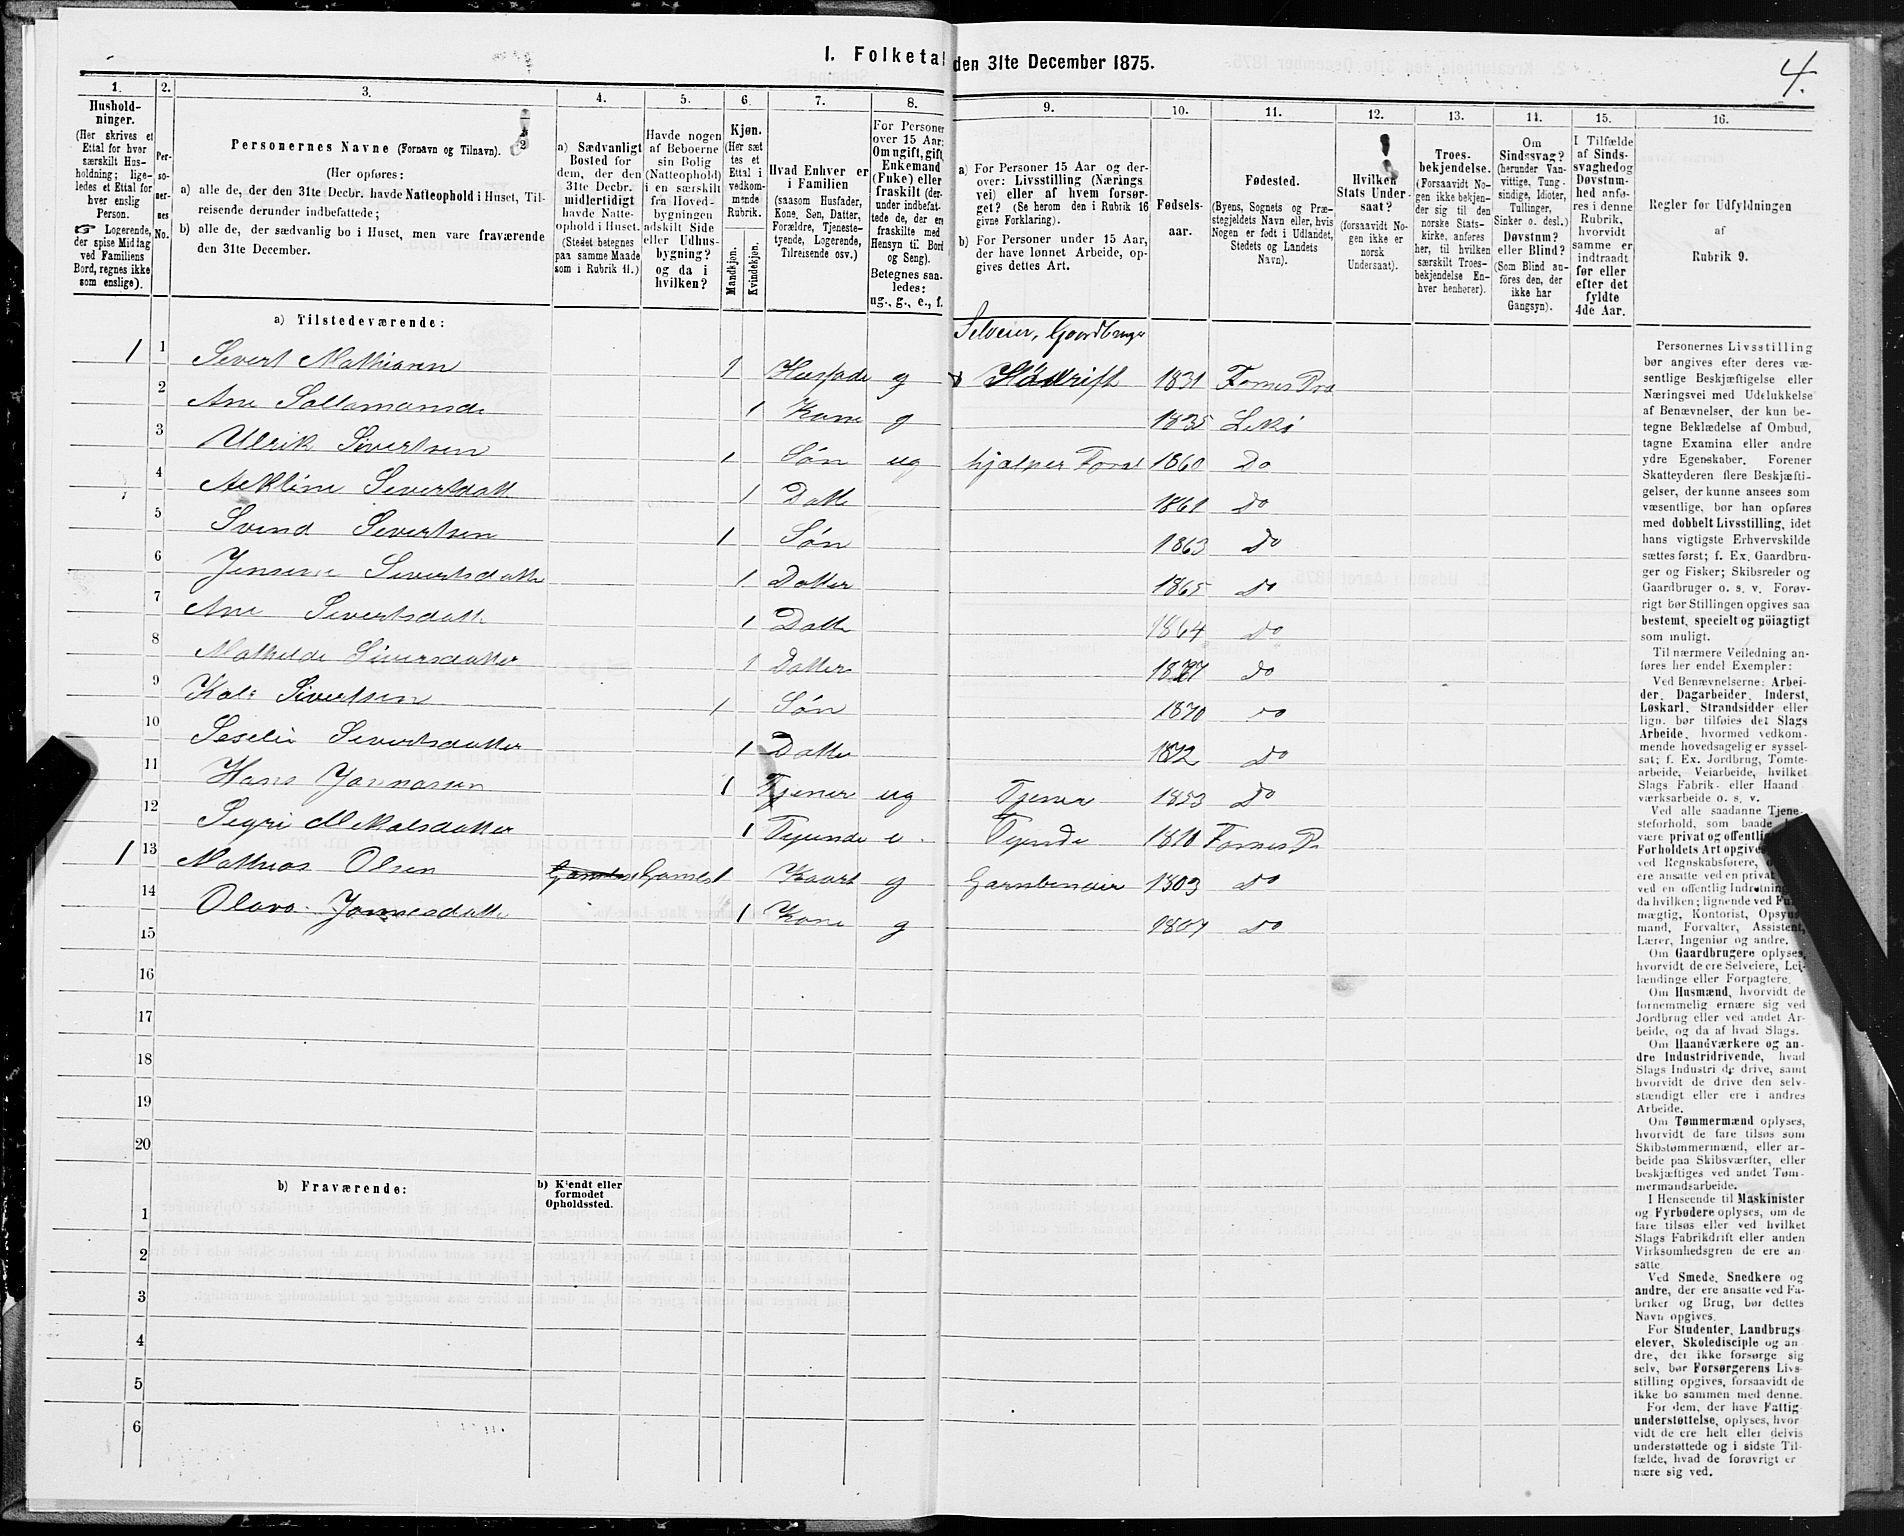 I. Folketal den 31te December 1875.
4.
1. 2. 3. 4. 5. 6. 7. 8. 9. 10. 11. 12. 13. 14. 15. 16.
Hushold-
ninger.
(Her skrives et
Ettal for hver
særskilt Hus-
holdning; lige-
ledes et Ettal for
hver enslig
Person.
☞ Logerende,
der spise Middag
ved Familiens
Bord, regnes ikke
som enslige).
Per-
so-
ner-
nes
No.
Personernes Navne (Fornavn og Tilnavn).
(Her opføres:
a) alle de, der den 31te Decbr. havde Natteophold i Huset, Til-
reisende derunder indbefattede;
b) alle de, der sædvanlig bo i Huset, men vare fraværende
den 31te December.
a) Sædvanligt
Bosted for
dem, der den
31te Decbr.
midlertidigt
havde Natte-
ophold i Huset.
(Stedet betegnes
paa samme Maade
som i Rubrik 11.)
Havde nogen
af Beboerne
sin Bolig
(Natteophold)
i en særskilt
fra Hoved-
bygningen
adskilt Side
eller Udhus-
bygning?
og da i
hvilken?
Kjøn.
(Her sæt
tes et
Ettal i
vedkom-
mende
Rubrik.
Mandkjøn.
Kvindekjøn.
Hvad Enhver er
i Familien
(saasom Husfader,
Kone, Søn, Datter,
Forældre, Tjeneste-
tyende, Logerende,
Tilreisende osv.)
For Personer
over 15 Aar:
Om ugift, gift,
Enkemand
(Enke) eller
fraskilt (der-
under indbefat-
tede de, der ere
fraskilte med
Hensyn til Bord
og Seng).
Betegnes saa-
ledes:
ug., g., e., f.
a) For Personer 15 Aar og der-
over: Livsstilling (Nærings
vei) eller af hvem forsør-
get? (Se herom den i Rubrik 16
givne Forklaring).
b) For Personer under 15 Aar,
der have lønnet Arbeide, op-
gives dettes Art.
Fødsels-
aar.
Fødested.
(Byens, Sognets og Præ-
stegjeldets Navn eller, hvis
Nogen er født i Udlandet,
Stedets og Landets
Navn).
Hvilken
Stats Under-
saat?
(forsaavidt No-
gen ikke er
norsk
Undersaat).
Troes-
bekjendelse.
(Forsaavidt No-
gen ikke bekjen-
der sig til den
norske Stats-
kirke, anføres
her, til hvilken
særskilt Troes-
bekjendelse En-
hver henhører).
Om
Sindssvag?
(herunder Van-
vittige, Tung-
sindige, Idioter,
Tullinger,
Sinker o. desl.)
Døvstum?
eller Blind?
(Som Blind an-
føres den, der
ikke har
Gangsyn).
I Tilfælde
af Sinds-
svaghed og
Døvstum-
hed anfø-
res i denne
Rubrik,
hvorvidt
samme er
indtraadt
før eller
efter det
fyldte
4de Aar.
Regler for Udfyldningen
af
Rubrik 9.
a) Tilstedeværende:
Selveier, Gaardbruger
1 1 Sivert Mathiasen 1 Husfade g 1831 Fornes Pra
2 Ane Sallamonsda 1 Kone g 1835 Lekø
3 Ulrik Sivertsen 1 Søn ug hjelper Foræl 1860 Do
4 Sivertsdatt 1 Datte 1861 Do
5 Svend Sivertsen 1 Søn 1863 Do
6 Jensine Sivertsdatte 1 Datter 1865 Do
7 Ane Sivertsdatte 1 Datte 1864 Do
8 Mathilde Siversdatter 1 Datter Do
9 Sivertsen 1 Søn 1870 Do
10 Seselie Sivertsdatter 1 Datte 1872 Do
11 Hans Jonnassen 1 Tjener ug Tjener 1853 Do
12 Segri Mikalsdatter 1 Tyende e. Tyende 1810 Fornes Pr
1 13 Mathias Olsen 1 Kaart g 1803 Do
14 Olava Jonnesdatte 1 Kone g 1807 Do
15
16
17
18
19
20
b) Fraværende:
b) Kjendt eller
formodet
Opholdssted.
1
2
3
4
5
6
Personernes Livsstilling
bør angives efter deres væ-
sentlige Beskjæftigelse eller
Næringsvei med Udelukkelse
af Benævnelser, der kun be-
tegne Beklædelse af Ombud,
tagne Examina eller andre
ydre Egenskaber. Forener
Skatteyderen flere Beskjæfti-
gelser, der kunne ansees som
væsentlige, bør han opføres
med dobbelt Livsstilling, idet
hans vigtigste Erhvervskilde
sættes først; f. Ex. Gaardbru-
ger og Fisker; Skibsreder og
Gaardbruger o. s. v. Forøv-
rigt bør Stillingen opgives saa
bestemt, specielt og nøiagtigt
som muligt.
Til nærmere Veiledning an-
føres her endel Exempler:
Ved Benævnelserne: Arbei-
der, Dagarbeider, Inderst,
Løskarl, Strandsidder eller
lign. bør tilføies det Slags
Arbeide, hvormed vedkom-
mende hovedsagelig er syssel-
sat; f. Ex. Jordbrug, Tomte-
arbeide, Veiarbeide, hvilket
Slags Fabrik- eller Haand
værksarbeide o. s. v.
Ved alle saadanne Tjene-
steforhold, som baade
være privat og offentlig
Forholdets Art opgives
ved Regnskabsførere,
ere ansatte ved en privat
ved en offentlig Indretning
da hvilken; lignende ved
mægtig, Kontorist, Opsyns
mand, Forvalter, Assistent,
Lærer, Ingeniør og andre.
Om Gaardbrugere oplyses,
hvorvidt de ere Selveiere, Lei-
lændinge eller Forpagtere.
Om Husmænd, hvorvidt de
fornemmelig ernære sig ved
Jordbrug eller ved andet Ar-
beide, og da af hvad Slags.
Om Haandværkere og an-
dre Industridrivende, hvad
Slags Industri de drive, samt
hvorvidt de drive den selv-
stændigt eller ere i andres
Arbeide.
Om Tømmermænd oplyses,
hvorvidt de fare tilsøs som
Skibstømmermænd, eller ar-
beide paa Skibsværfter, eller
beskjæftiges ved andet Tøm-
mermandsarbeide.
I Henseende til Maskinister
og Fyrbødere oplyses, om de
fare tilsøs eller ved hvilket
Slags Fabrikdrift eller anden
Virksomhedsgren de ere an
satte.
Ved Smede, Snedkere og
andre, der ere ansatte ved Fa-
briker og Brug, bør dettes
Navn opgives.
For Studenter, Landbrugs
elever, Skoledisciple og an
dre, der ikke forsørge sig
selv, bør Forsørgerens Livs-
stilling opgives, forsaavidt de
ikke bo sammen med denne.
For dem, der have Fattig
understøttelse, oplyses, hvor
vidt de ere helt eller delvis
understøttede og i sidste Til-
fælde, hvad de forøvrigt er
nære sig ved.